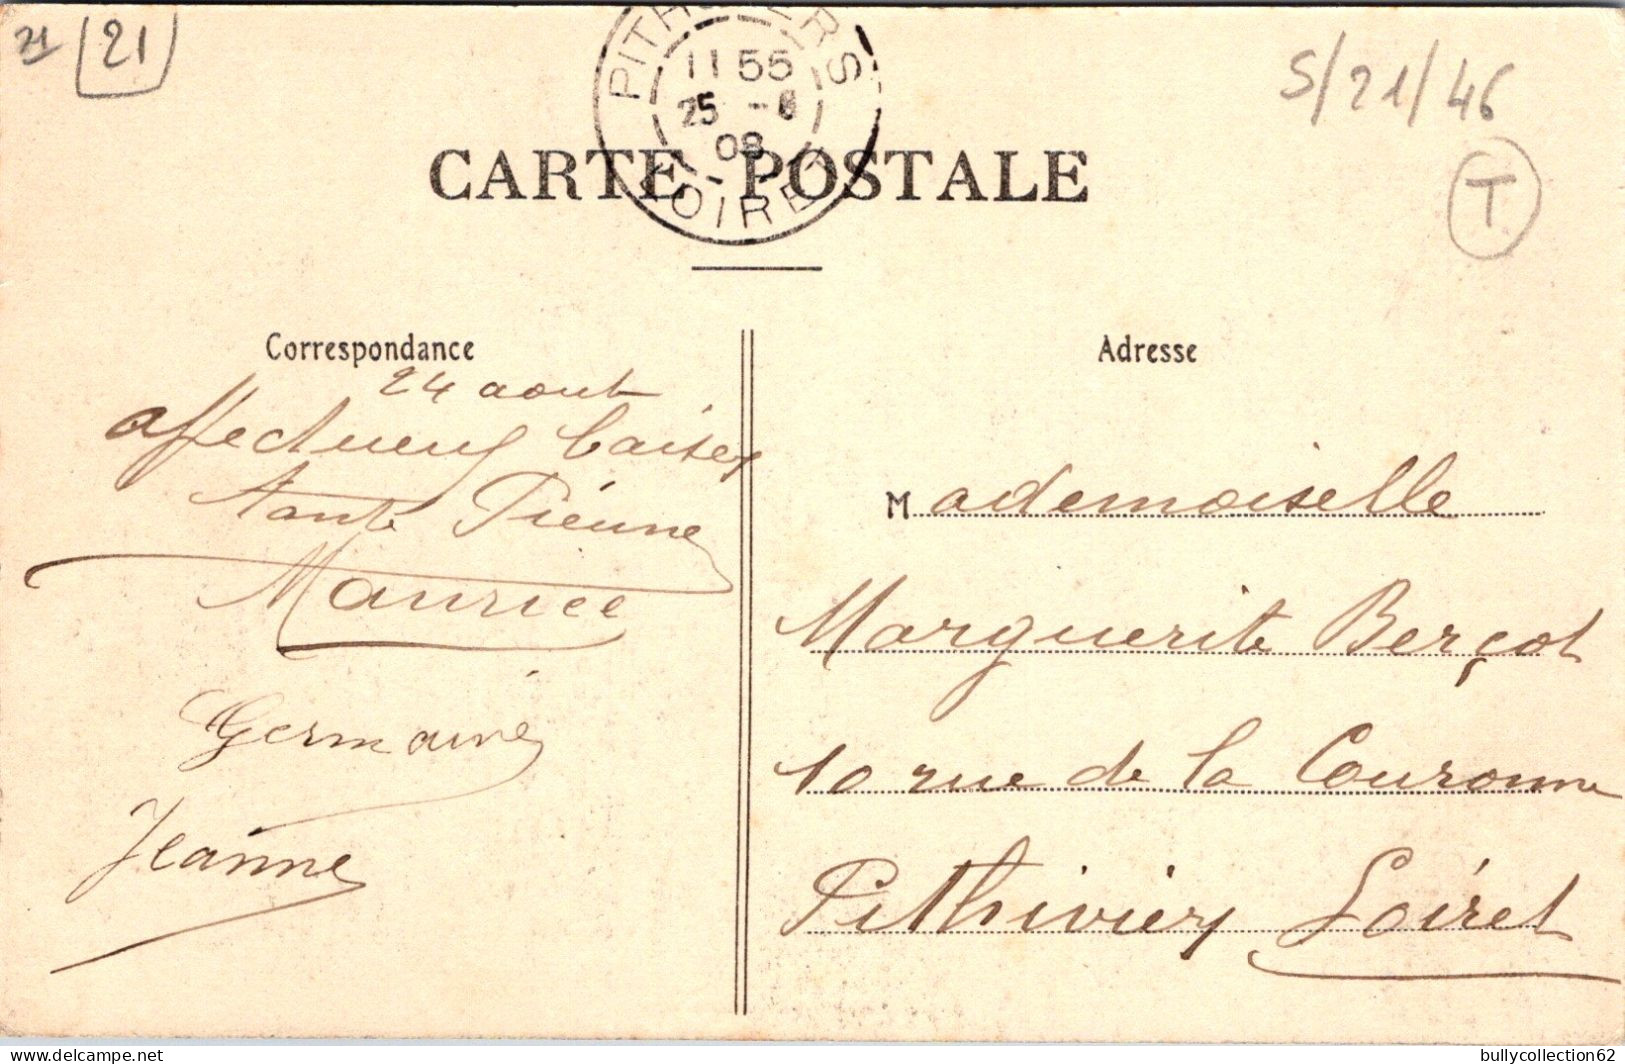 21 21
S/21/46
T
PITHIVIERS
11 55
25 -8
08
LOIRET
CARTE POSTALE
Correspondance
24 aout
affectueux baisers
Tante
Maurice
Germaine
Jeanne
Adresse
Mademoiselle
Marguerite Berçot
10 rue de la Couronne
Pithiviers Loiret
delcampe.net
bullycollection62